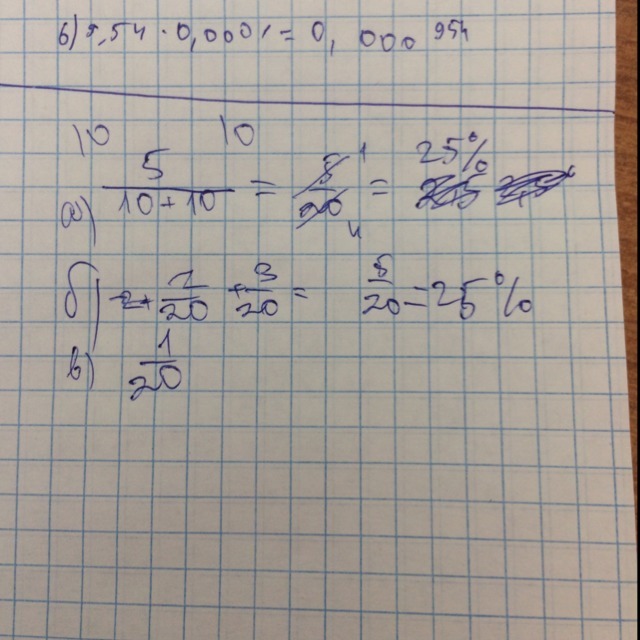 в) 9,54 · 0,0001 = 0, 000 954
10 10
а) 5/(10+10) = 5/20 1 4 = 25%
б) 2/20 + 3/20 = 5/20 = 25%
в) 1/20